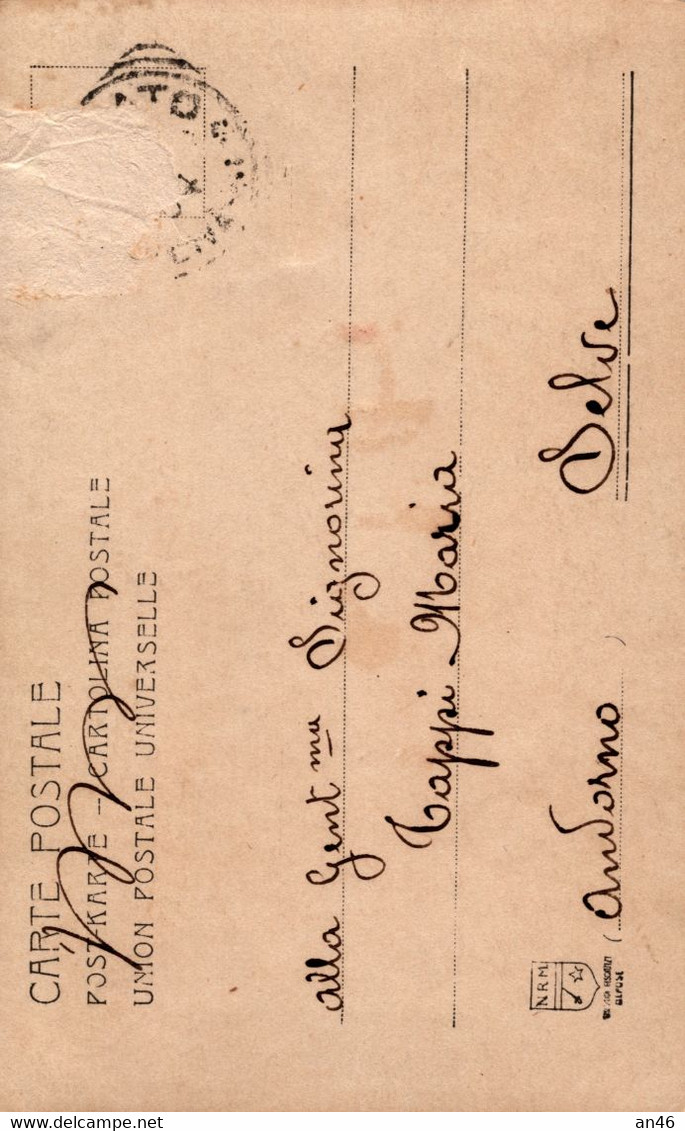 CARTE POSTALE
POSTKARTE – CARTOLINA POSTALE
UNION POSTALE UNIVERSELLE
Alla Gent ma Signorina
Tappi Maria
(Andorno) Selve
N.R.M.
DEPOSE
delcampe.net
an46